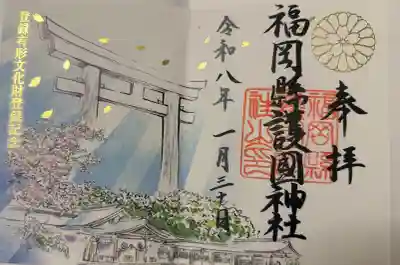 奉拝
福岡縣護國神社
令和八年 一月三十日
登録有形文化財登録記念